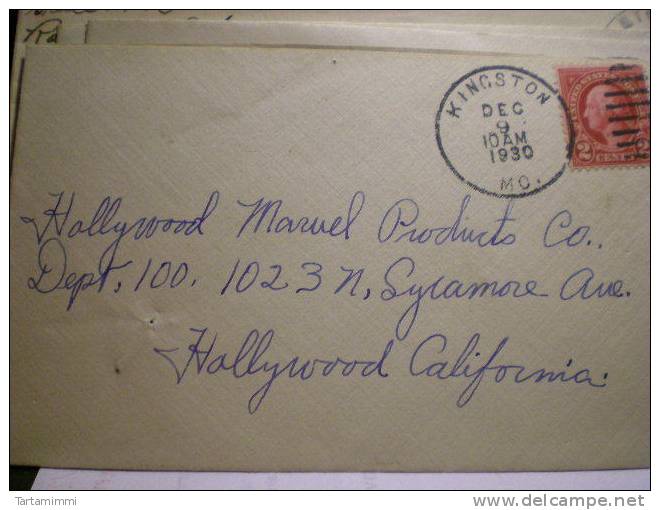 KINGSTON
DEC
9
10 AM
1930
MO.
2
Hollywood Marvel Products Co.
Dept. 100. 1023 N, Sycamore Ave.
Hollywood California.
Tartamimmi
delcampe.net